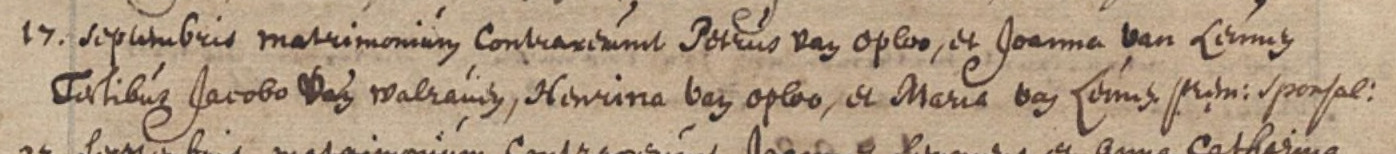 17. Septembris matrimonium contraxerunt Petrus van oploo, et Joanna van Leuwen
Testibus Jacobo van walraven, Henrina van oploo, et Maria van Leuwen sponsal:
septembris matrimonium contraxerunt et Anna Catharina